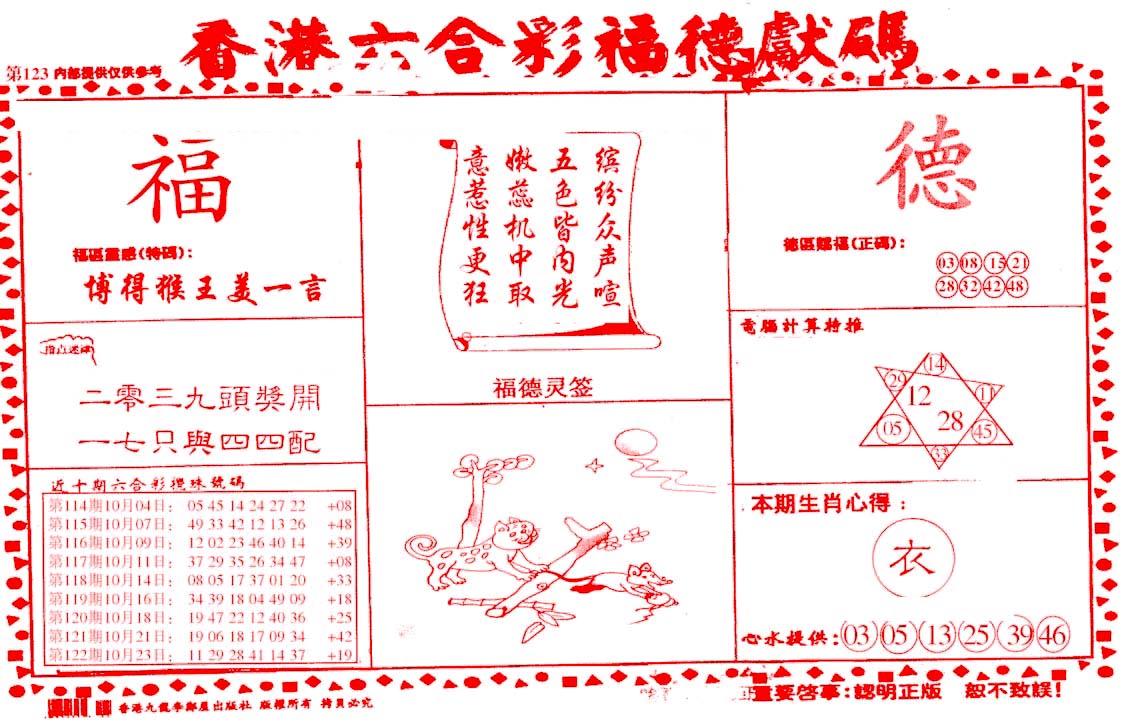 香港六合彩福德獻碼
第123 内部提供仅供参考
福
福區靈感(特碼):
博得猴王美一言
指点迷津
二零三九頭獎開
一七只與四四配
近十期六合彩攪珠號碼
第114期10月04日: 05 45 14 24 27 22 +08
第115期10月07日: 49 33 42 12 13 26 +48
第116期10月09日: 12 02 23 46 40 14 +39
第117期10月11日: 37 29 35 26 34 47 +08
第118期10月14日: 08 05 17 37 01 20 +33
第119期10月16日: 34 39 18 04 49 09 +18
第120期10月18日: 19 47 22 12 40 36 +25
第121期10月21日: 19 06 18 17 09 34 +42
第122期10月23日: 11 29 28 41 14 37 +19
缤纷众声喧
五色皆内光
嫩蕊机中取
意惹性更狂
福德灵签
德
德區賜福(正碼):
03 08 15 21
28 32 42 48
電腦計算特推
14
29
12
11
05
28
45
33
本期生肖心得:
衣
心水提供:03 05 13 25 39 46
重要啓事:認明正版 恕不致誤!
香港九龍李鄭屋出版社 版權所有 拷貝必究